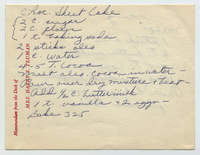 Choc. Sheet Cake
2 C. sugar
2 C. flour
1 t. baking soda
2 sticks oleo
1 C. Water
4-5 T. Cocoa
Heat oleo, cocoa, in water
Pour over dry mixture & beat
Add 1/2 C. buttermilk
1 t. vanilla & 2 eggs
Bake 325
Memorandum from the Desk of
MRS.